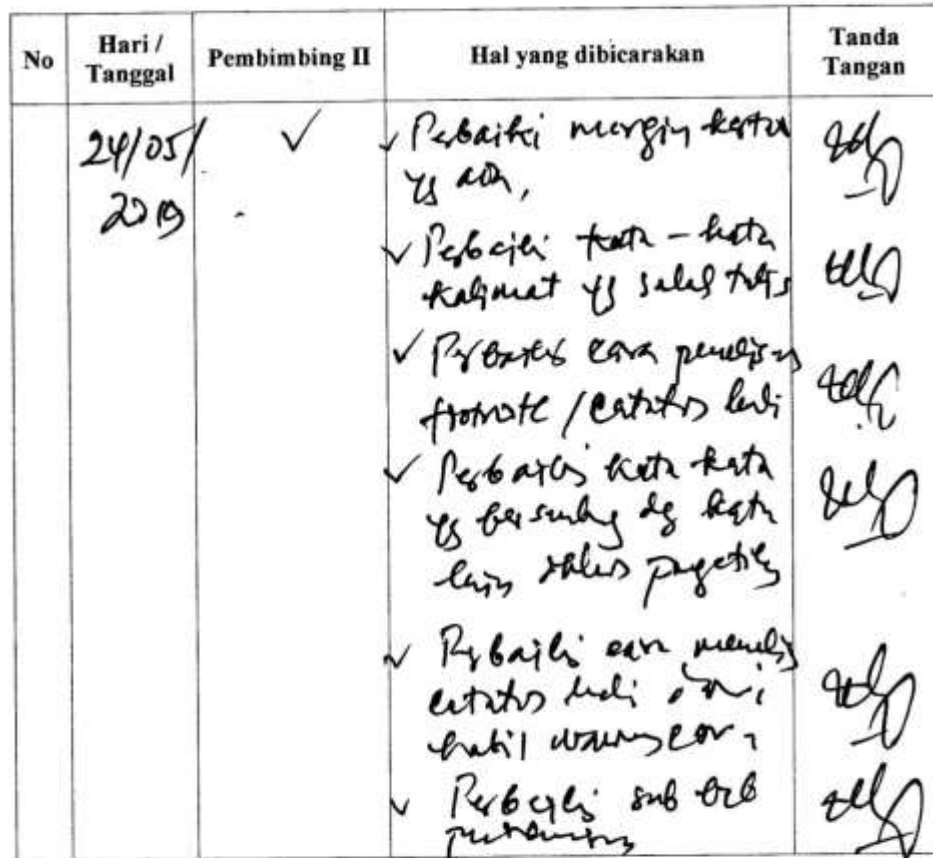 No
Hari /
Tanggal
Pembimbing II
Hal yang dibicarakan
Tanda
Tangan
24/05/
2019
✓
✓ Perbaiki margin kertas
yg ada,
✓ Perbaiki kata - kata
kalimat yg salah tulis
✓ Perbaiki cara penulisan
footnote / catatan kaki
✓ Perbaiki kata kata
yg bersambung dg kata
lain dalam pengetikan
✓ Perbaiki cara menulis
catatan kaki dari
hasil wawancara,
✓ Perbaiki sub bab